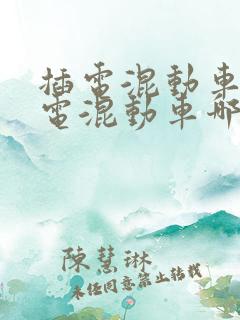 插電混動車
電混動車哪
陳慧琳
未经同意禁止转载